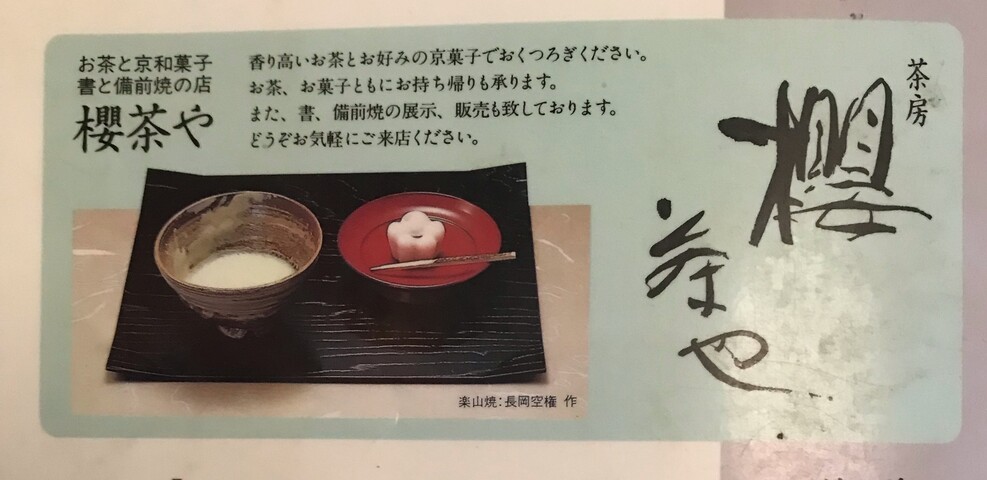 お茶と京和菓子
書と備前焼の店
櫻茶や
香り高いお茶とお好みの京菓子でおくつろぎください。
お茶、お菓子ともにお持ち帰りも承ります。
また、書、備前焼の展示、販売も致しております。
どうぞお気軽にご来店ください。
茶房
櫻
茶
や
楽山焼:長岡空権 作